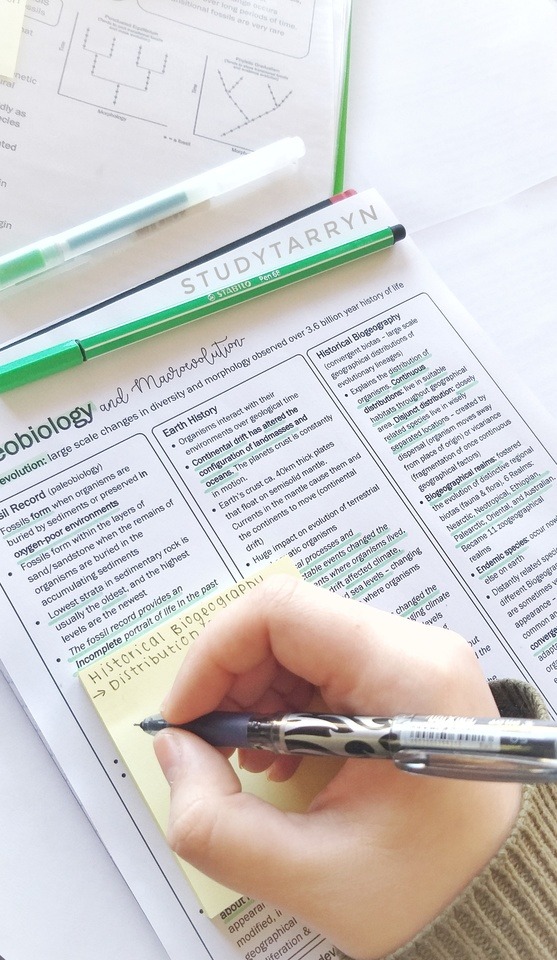 over long periods of time.
transitional fossils are very rare
Punctuated Equilibrium
Morphology
fossil
STUDYTARRYN
STABILO Pen 68
eobiology and Macroevolution
evolution: large scale changes in diversity and morphology observed over 3.6 billion year history of life
sil Record (paleobiology)
Fossils form when organisms are
buried by sediments or preserved in
oxygen-poor environments
• Fossils form within the layers of
sand/sandstone when the remains of
organisms are buried in the
accumulating sediments
• Lowest strata in sedimentary rock is
usually the oldest, and the highest
levels are the newest
• The fossil record provides an
Incomplete portrait of life in the past
Earth History
• Organisms interact with their
environments over geological time
• Continental drift has altered the
configuration of landmasses and
oceans. The planets crust is constantly
in motion.
• Earth's crust ca. 40km thick plates
that float on semisolid mantle.
Currents in the mantle cause them and
the continents to move (continental
drift)
• Huge impact on evolution of terrestrial
organisms
processes and
events changed the
where organisms lived.
drift affected climate,
sea levels – changing
where organisms
changed the
climate
Historical Biogeography
(convergent biotas – large scale
geographical distributions of
evolutionary lineages)
• Explains the distribution of
organisms. Continuous
distributions: live in suitable
habitats throughout geographical
area. Disjunct distribution: closely
related species live in widely
separated locations – created by
dispersal (organism moves away
from place of origin) or vicariance
(fragmentation of once continuous
geographical factors)
• Biogeographical realms fostered
the evolution of distinctive regional
biotas (fauna & flora). 6 Realms:
Nearctic, Neotropical, Ethiopian,
Palearctic, Oriental, and Australian.
Became 11 zoogeographical
realms
• Endemic species: occur
else on earth
• Distantly related
different Biogeographical
are sometimes
appearance.
common
adapt
Historical Biogeography
→ Distribution
about
appearan
modified, i
geographical
liferation &